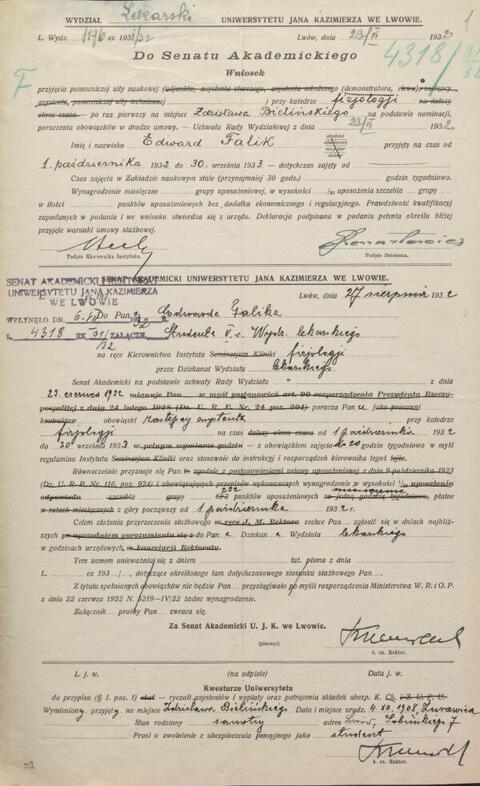 WYDZIAŁ Lekarski UNIWERSYTETU JANA KAZIMIERZA WE LWOWIE.
1
L. Wydz. 1176 ex 1931/32 Lwów, dnia 23/VI 1932
4318/31/32
Do Senatu Akademickiego
F
Wniosek
przyjęcia pomocniczej siły naukowej (adjunkta, asystenta starszego, asystenta młodszego (demonstratora, elewa) zastępcy
asystenta, pomocniczej siły technicznej) przy katedrze fizjologji na dalszy
okres czasu - po raz pierwszy na miejsce Zdzisława Bielińskiego na podstawie nominacji,
poruczenia obowiązków w drodze umowy. – Uchwała Rady Wydziałowej z dnia 23/VI 1932.
Imię i nazwisko Edward Falik przyjęty na czas od
1 października 1932 do 30 września 1933 – dotychczas zajęty od
Czas zajęcia w Zakładzie naukowym stale (przynajmniej 30 godz.) godzin tygodniowo.
Wynagrodzenie miesięczne grupy uposażeniowej, w wysokości uposażenia szczebla grupy
w ilości punktów uposażeniowych bez dodatku ekonomicznego i regulacyjnego. Prawdziwość kwalifikacyj
zapodanych w podaniu i we wniosku stwierdza się z urzędu. Deklaracja podpisana w podaniu petenta określa bliżej
przyjęte warunki umowy służbowej.
Podpis Kierownika Instytutu. Podpis Dziekana.
SENAT AKADEMICKI UNIWERSYTETU JANA KAZIMIERZA WE LWOWIE.
SENAT AKADEMICKI
UNIWERSYTETU JANA KAZIMIERZA
WE LWOWIE
Lwów, dnia 27 sierpnia 1932
WPŁYNĘŁO DN. 6. Do Pana Edwarda Falika
L. 4318 EX 31/32 ZAŁĄCZN. Studenta V. r. Wydz. lekarskiego
na ręce Kierownictwa Instytutu Seminarjum Kliniki fizjologji
przez Dziekanat Wydziału lekarskiego.
Senat Akademicki na podstawie uchwały Rady Wydziału " z dnia
23. czerwca 1932 mianuje Pan w myśl postanowień art. 90 rozporządzenia Prezydenta Rzeczy-
pospolitej z dnia 24 lutego 1928 (Dz. U. R. P. Nr. 24 poz. 204) porucza Panu jako
kontraktow obowiązki Zastępcy asystenta przy katedrze
fizjologji na czas dalszy okres czasu od 1 października 1932
do 30 września 1933 w pełnym wymiarze godzin – z obowiązkiem zajęć do 20 godzin tygodniowo w myśl
regulaminu Instytutu Seminarjum Kliniki oraz stosownie do instrukcyj i rozporządzeń kierownika tegoż tejże.
Równocześnie przyznaje się Panu zgodnie z postanowieniami ustawy uposażeniowej z dnia 9 października 1923
(Dz. U. R. P. Nr. 116, poz. 924) i obowiązujących przepisów wykonawczych wynagrodzenie w wysokości uposażenia
szczebla grupy 232 punktów uposażeniowych za jedną godzinę tygodniowo, płatne
w ratach miesięcznych z góry począwszy od 1 października 1932 r.
Celem złożenia przyrzeczenia służbowego w ręce J. M. Rektora zechce Pan zgłosić się w dniach najbliż-
szych po uprzedniem porozumieniu się z do Pana Dziekana Wydziału lekarskiego
w godzinach urzędowych, w kancelarji Rektoratu.
Tem samem unieważnia się z dniem tut. pismo z dnia
L. ex 193 /, dotyczące określonego tam dotychczasowego stosunku służbowego Pan
Z tytułu spełnianych obowiązków nie będzie Pan przysługiwało po myśli rozporządzenia Ministerstwa W. R. i O. P.
z dnia 22 czerwca 1922 N. 5219–IV/22 żadne wynagrodzenie.
Załącznik prośby Pan zwraca się.
Za Senat Akademicki U. J. K. we Lwowie.
(pieczęć)
t. cz. Rektor.
L. j. w. (na odpisie) Data j. w.
Kwesturze Uniwersytetu
do przypisu (§ 1. poz. 1) etat – ryczałt asystentów i wypłaty oraz potrącenia składek ubezp. K. Ch. i Z. U. P. U.
Wymieniony przyjęty na miejsce Zdzisława Bielińskiego Data i miejsce urodz. 4. XII. 1908, Żurawica
Stan rodzinny samotny adres Lwów, Sobińskiego 7
Prosi o zwolnienie z ubezpieczenia pensyjnego jako student
t. cz. Rektor.